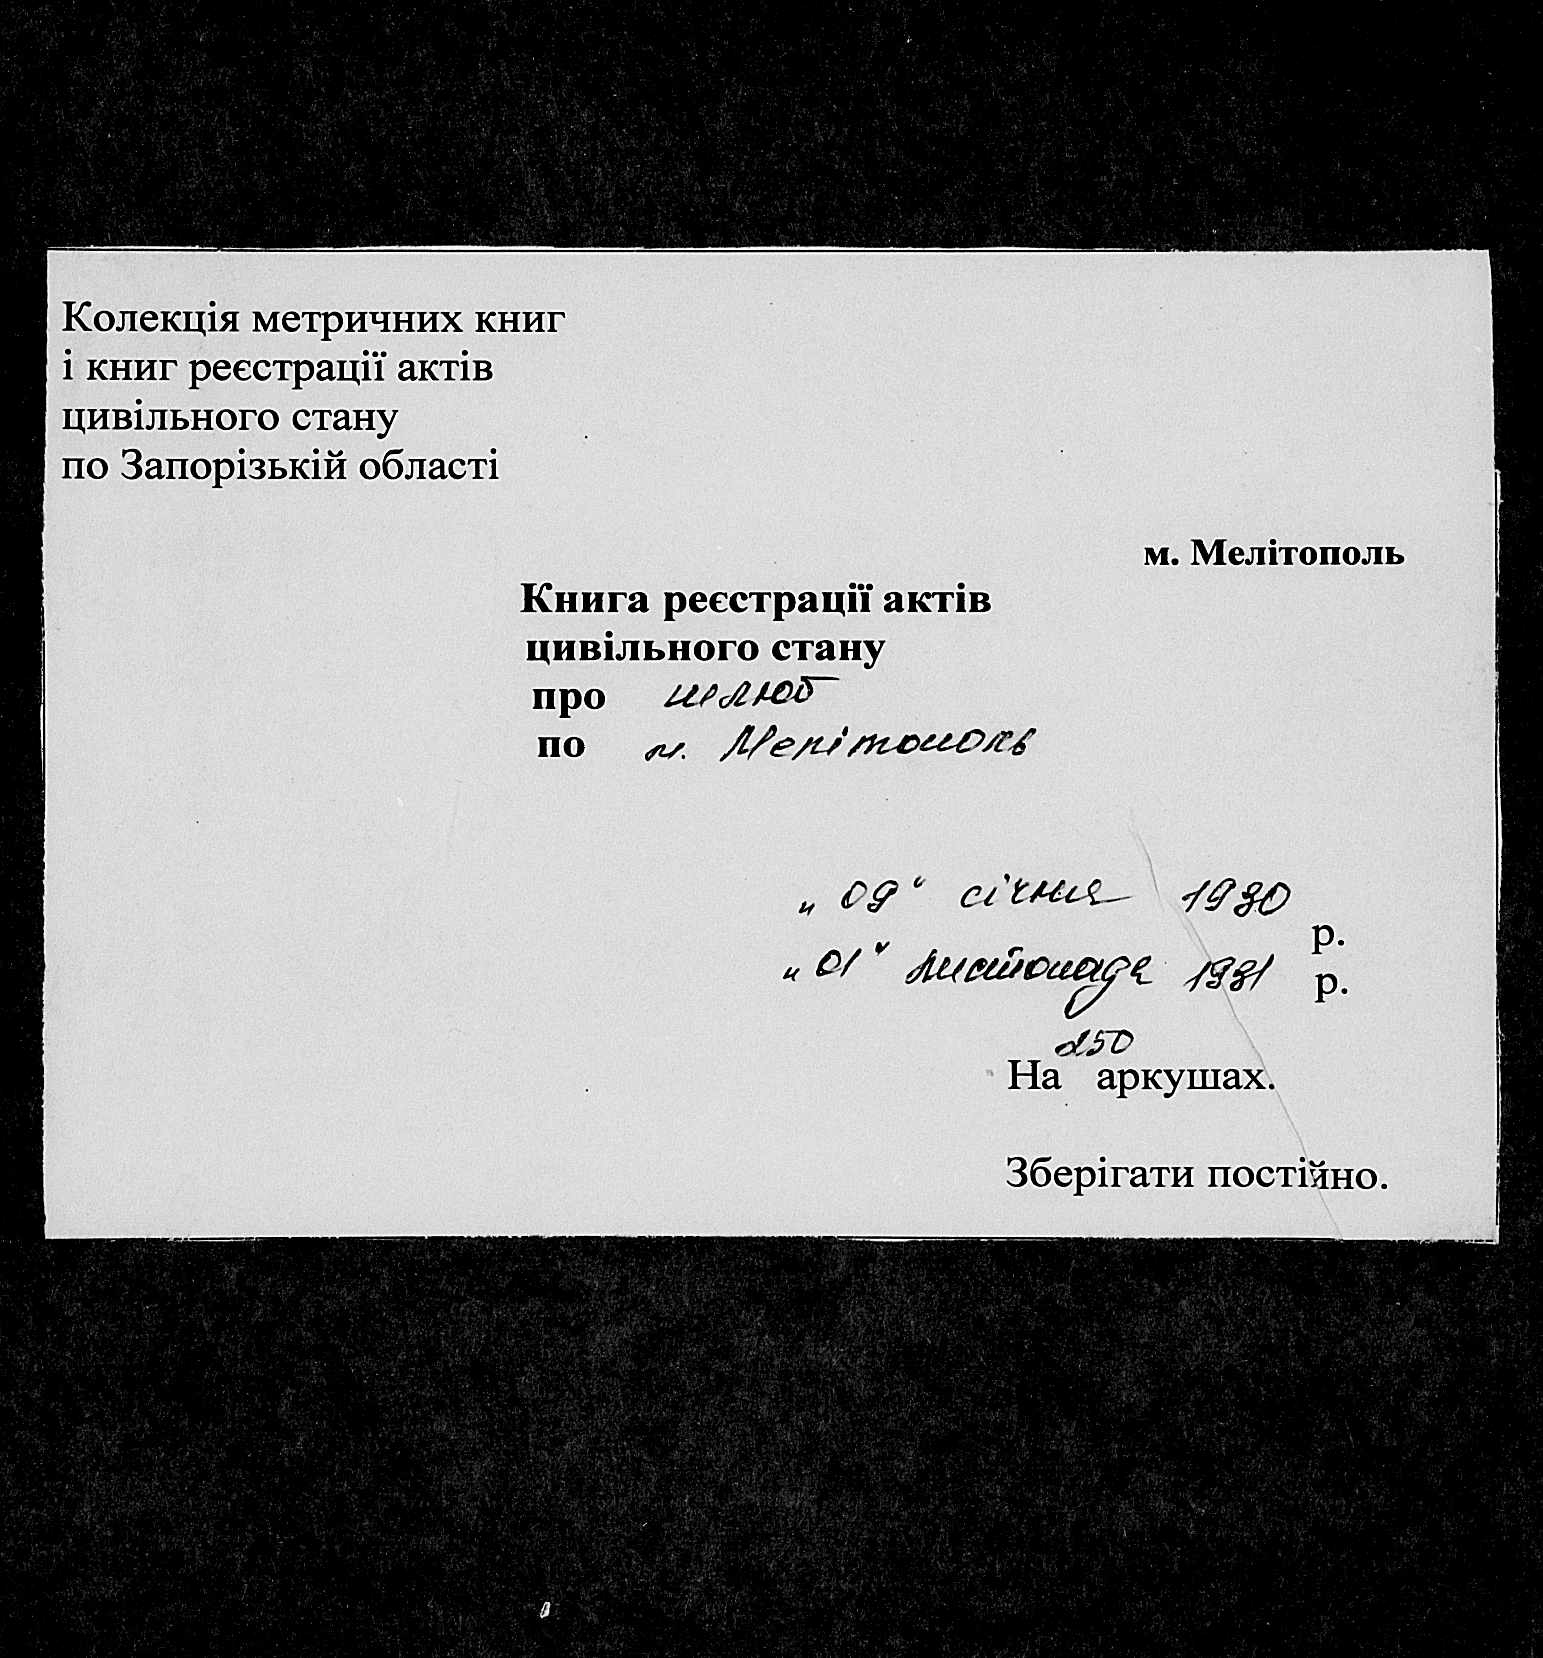 Колекція метричних книг
і книг реєстрації актів
цивільного стану
по Запорізькій області
м. Мелітополь
Книга реєстрації актів
цивільного стану
про шлюб
по м. Мелітополь
„09“ січня 1930 р.
„01“ листопада 1931 р.
250
На аркушах.
Зберігати постійно.